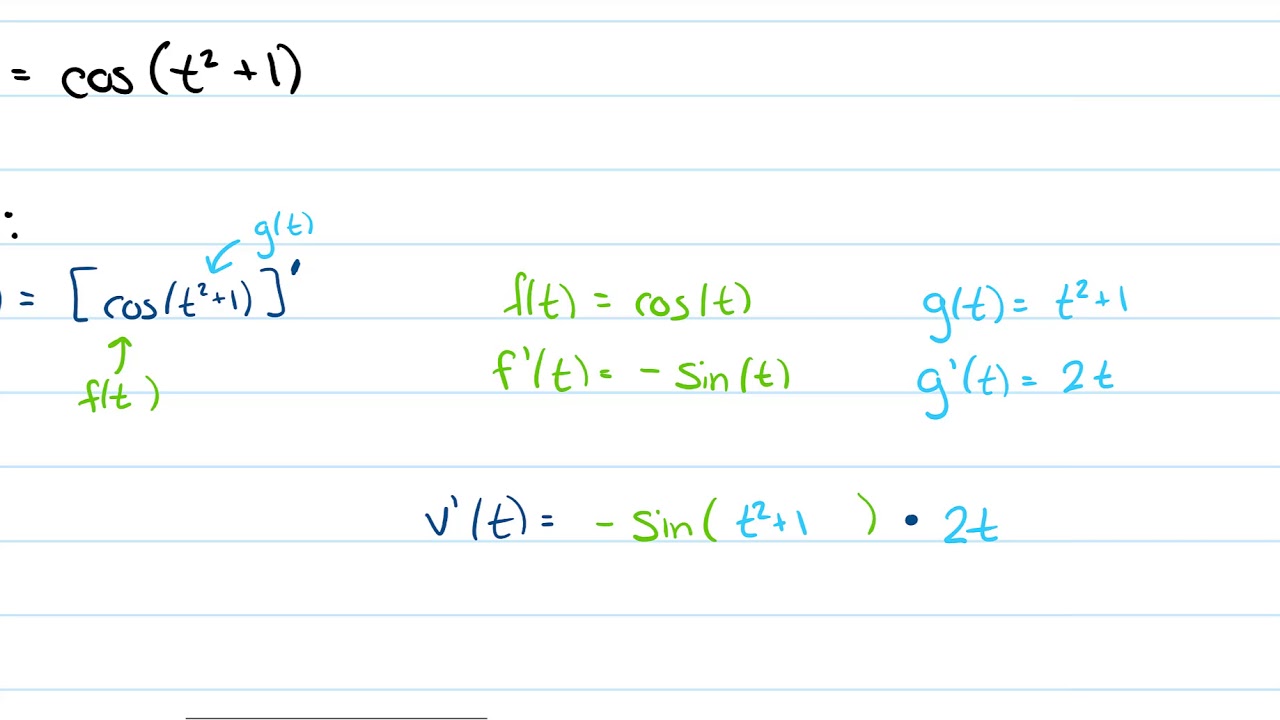 = cos(t² + 1)
:
) = [cos(t²+1)]'
g(t)
f(t)
f(t) = cos(t)
f'(t) = - sin(t)
g(t) = t²+1
g'(t) = 2t
v'(t) = - sin( t²+1 ) • 2t